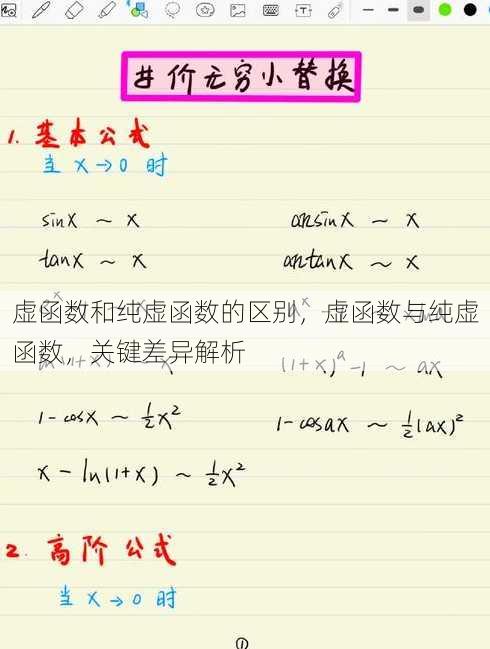 等价无穷小替换
1. 基本公式
当 x→0 时
sinx ~ x    arcsinx ~ x
tanx ~ x    arctanx ~ x
虚函数和纯虚函数的区别，虚函数与纯虚
函数，关键差异解析
(1+x)^a -1 ~ ax
1-cosx ~ ½x²    1-cosax ~ ½(ax)²
x - ln(1+x) ~ ½x²
2. 高阶公式
当 x→0 时
①